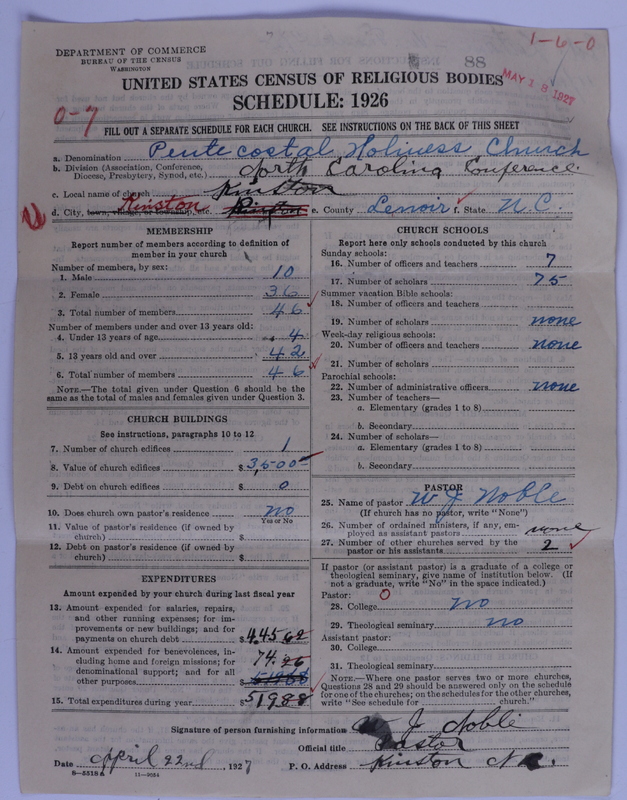 1-6-0
88
DEPARTMENT OF COMMERCE
BUREAU OF THE CENSUS
WASHINGTON
UNITED STATES CENSUS OF RELIGIOUS BODIES
MAY 18 1927
SCHEDULE: 1926
0-7
FILL OUT A SEPARATE SCHEDULE FOR EACH CHURCH. SEE INSTRUCTIONS ON THE BACK OF THIS SHEET
a. Denomination Pentecostal Holiness Church
b. Division (Association, Conference, Diocese, Presbytery, Synod, etc.) North Carolina Conference
c. Local name of church Kinston
d. City, town, village, or township, etc. Kinston Kinston e. County Lenoir f. State N.C.
MEMBERSHIP
Report number of members according to definition of
member in your church
Number of members, by sex:
1. Male 10
2. Female 36
3. Total number of members 46
Number of members under and over 13 years old:
4. Under 13 years of age 4
5. 13 years old and over 42
6. Total number of members 46
NOTE.—The total given under Question 6 should be the
same as the total of males and females given under Question 3.
CHURCH BUILDINGS
See instructions, paragraphs 10 to 12
7. Number of church edifices 1
8. Value of church edifices $ 3,500
9. Debt on church edifices $ 0
10. Does church own pastor's residence no
Yes or No
11. Value of pastor's residence (if owned by
church) $
12. Debt on pastor's residence (if owned by
church) $
EXPENDITURES
Amount expended by your church during last fiscal year
13. Amount expended for salaries, repairs,
and other running expenses; for im-
provements or new buildings; and for
payments on church debt $ 445 62
14. Amount expended for benevolences, in-
cluding home and foreign missions; for
denominational support; and for all
other purposes $ 74.26
15. Total expenditures during year $ 519 88
CHURCH SCHOOLS
Report here only schools conducted by this church
Sunday schools:
16. Number of officers and teachers 7
17. Number of scholars 75
Summer vacation Bible schools:
18. Number of officers and teachers
19. Number of scholars none
Week-day religious schools:
20. Number of officers and teachers none
21. Number of scholars
Parochial schools:
22. Number of administrative officers none
23. Number of teachers—
a. Elementary (grades 1 to 8)
b. Secondary
24. Number of scholars—
a. Elementary (grades 1 to 8)
b. Secondary
PASTOR
25. Name of pastor W J Noble
(If church has no pastor, write "None")
26. Number of ordained ministers, if any, em-
ployed as assistant pastors none
27. Number of other churches served by the
pastor or his assistants 2
If pastor (or assistant pastor) is a graduate of a college or
theological seminary, give name of institution below. (If
not a graduate, write "No" in the space indicated.)
Pastor: 0
28. College no
29. Theological seminary no
Assistant pastor:
30. College
31. Theological seminary
NOTE.—Where one pastor serves two or more churches,
Questions 28 and 29 should be answered only on the schedule
for one of the churches; on the schedules for the other churches,
write "See schedule for church."
Signature of person furnishing information J Noble
Official title Pastor
Date April 22nd, 1927 P. O. Address Kinston N.C.
8-5518a 11-9054